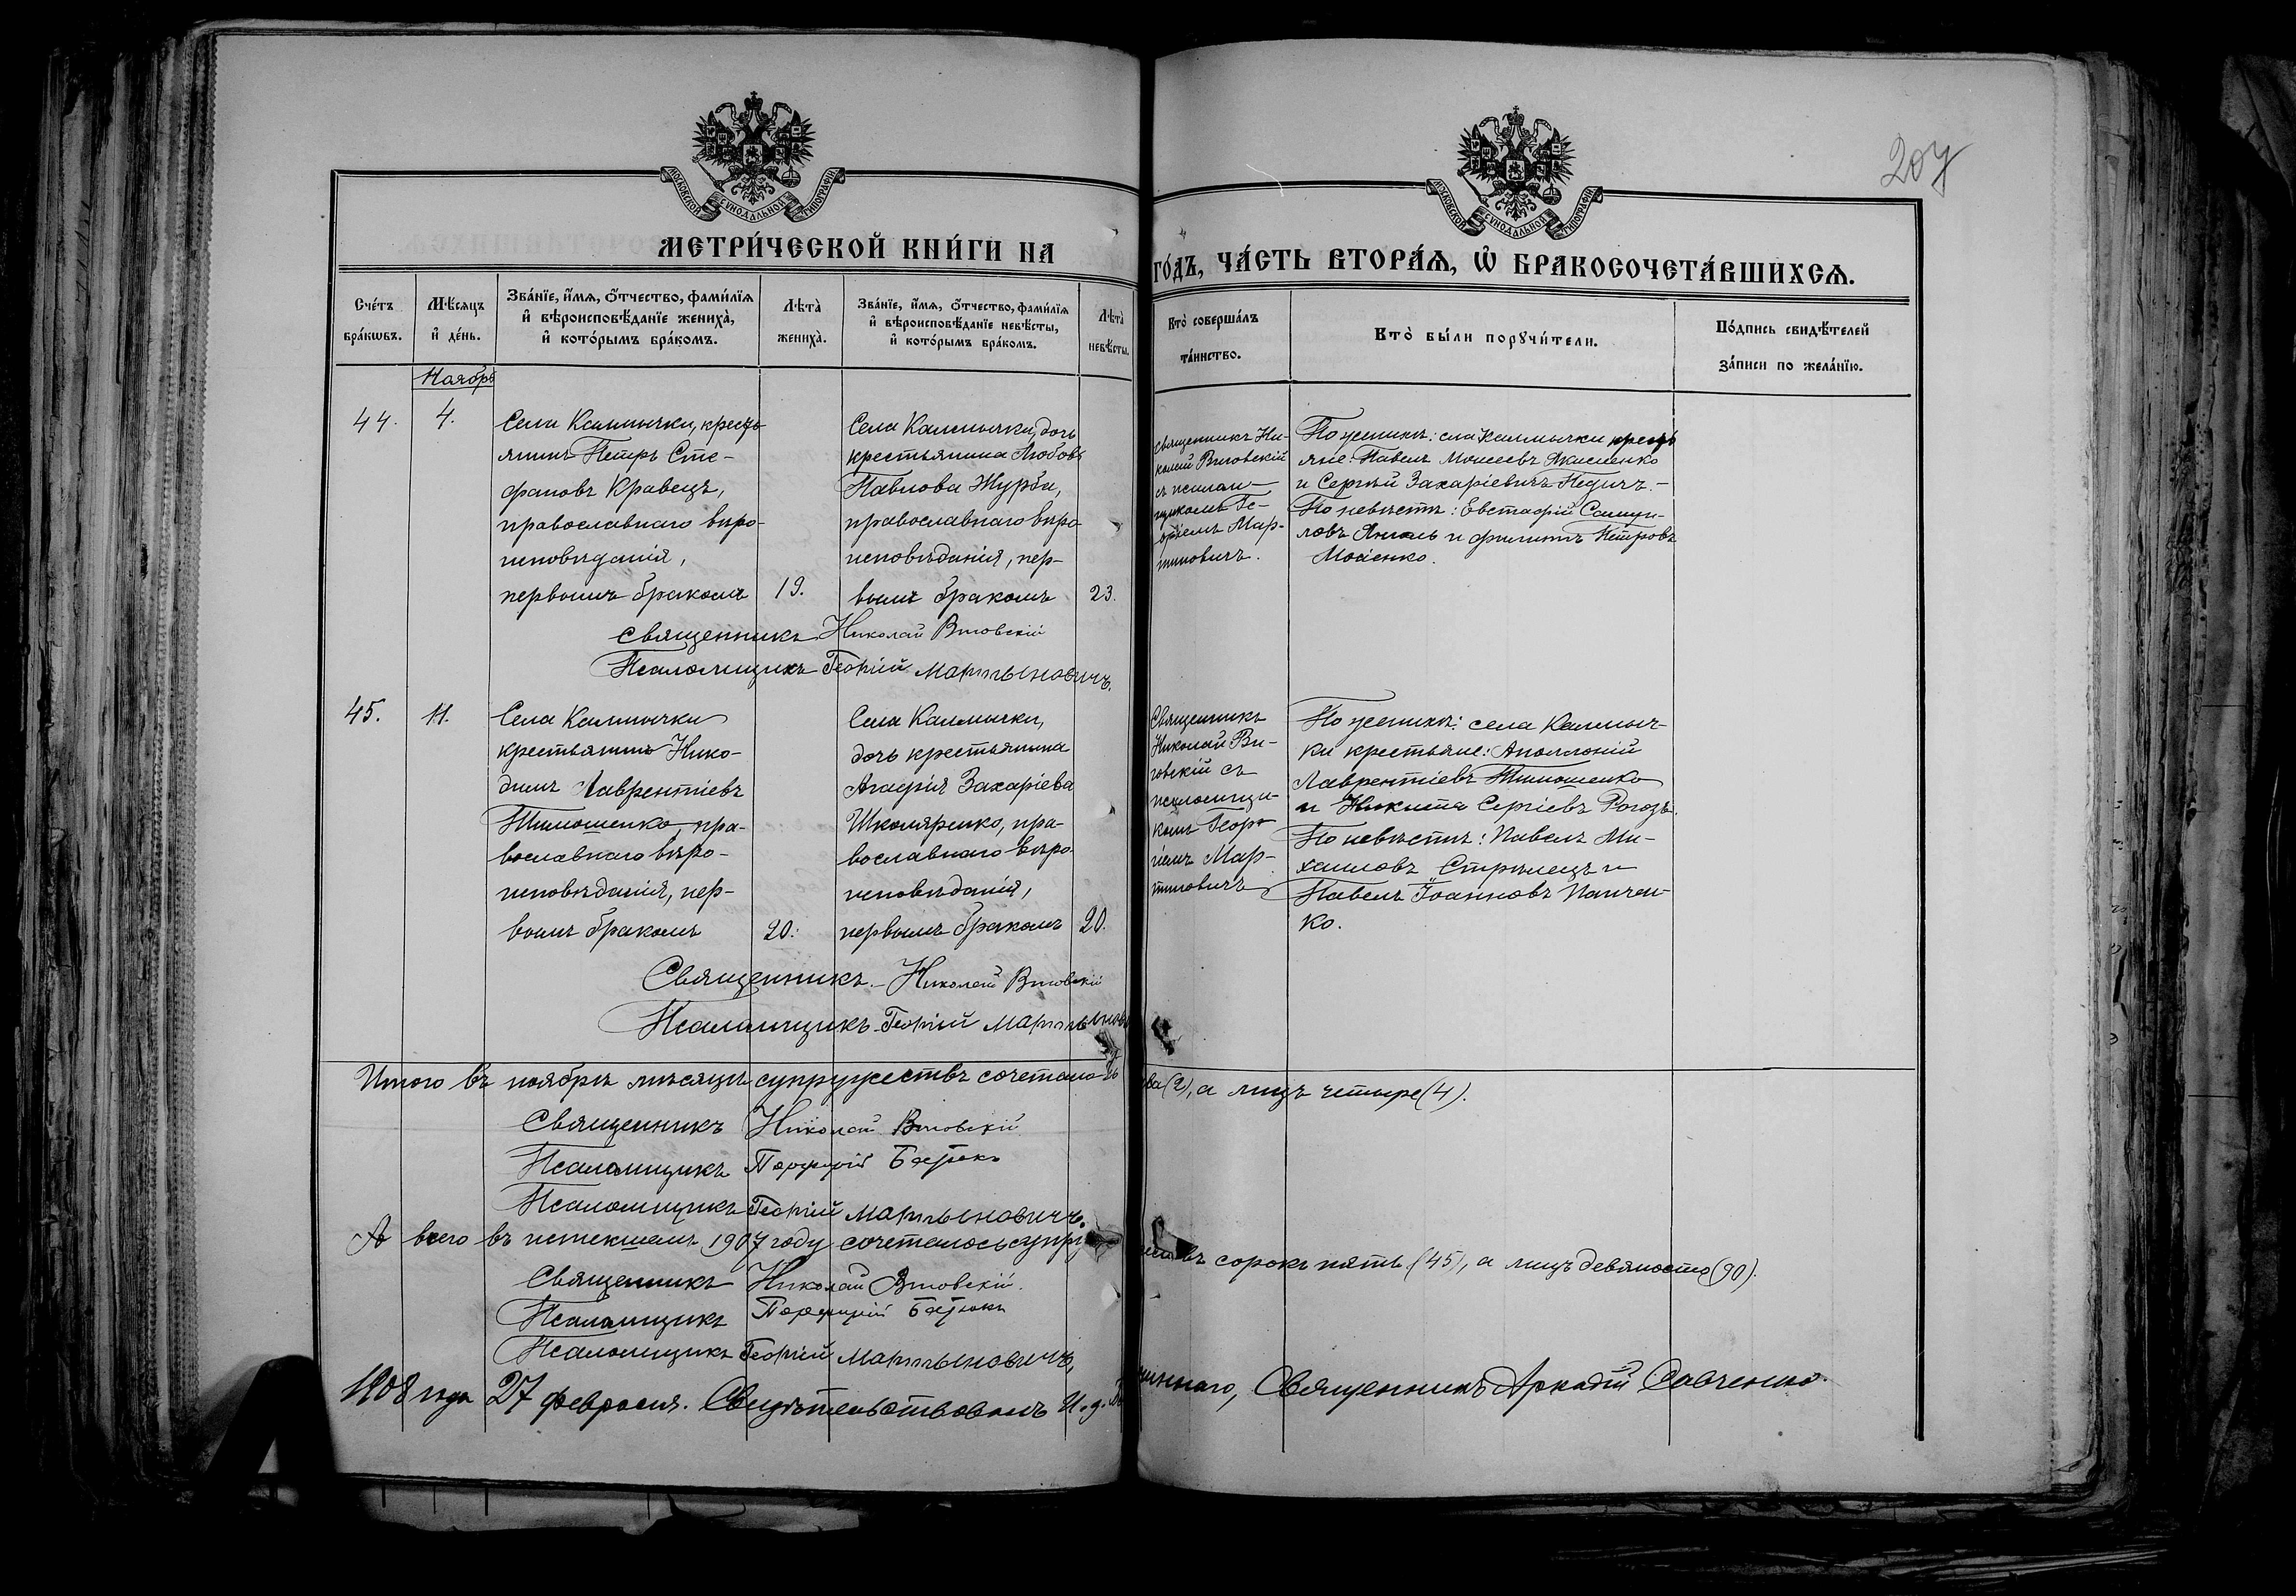 207
МОСКОВСКОЙ СѴНОДАЛЬНОЙ ТИПОГРАФІИ
МОСКОВСКОЙ СѴНОДАЛЬНОЙ ТИПОГРАФІИ
МЕТРИ́ЧЕСКОЙ КНИ́ГИ НА
ГО́ДЪ, ЧА́СТЬ ВТОРА́Ѧ, Ѡ҆ БРАКОСОЧЕТА́ВШИХСѦ.
Сче́тъ бра́кѡвъ.
Мѣ́сѧцъ и҆ де́нь.
Зва́нїе, и҆́мѧ, ѻ҆́тчество, фами́лїѧ и҆ вѣроисповѣ́данїе жениха̀, и҆ кото́рымъ бра́комъ.
Лѣта̀ жениха̀.
Зва́нїе, и҆́мѧ, ѻ҆́тчество, фами́лїѧ и҆ вѣроисповѣ́данїе невѣ́сты, и҆ кото́рымъ бра́комъ.
Лѣта̀ невѣ́сты.
Кто̀ соверша́лъ та́инство.
Кто̀ бы́ли порꙋчи́тели.
По́дпись свидѣ́телей за́писи по жела́нїю.
Ноябрь
44.
4.
Села Калмычки, кресть-
янинъ Петръ Сте-
фановъ Кравецъ,
православнаго вѣро-
исповѣданія,
первымъ бракомъ
19.
Села Калмычки, дочь
крестьянина Любовь
Павлова Журба,
православнаго вѣро-
исповѣданія, пер-
вымъ бракомъ
23.
Священникъ Ни-
колай Виговскій
съ псалом-
щикомъ Ге-
оргіемъ Мар-
тиновичъ.
По женихѣ: села Калмычки кресть
яне: Павелъ Моисеевъ Якименко
и Сергѣй Захаріевичъ
По невѣстѣ: Евстафій Самуи-
ловъ и Филиппъ Петровъ
Моісенко.
Священникъ Николай Виговскій
Псаломщикъ Георгій Мартыновичъ.
45.
11.
Села Калмычки
крестьянинъ Нико-
димъ Лаврентіевъ
Тимошенко, пра-
вославнаго вѣро-
исповѣданія, пер-
вымъ бракомъ
20.
Села Калмычки,
дочь крестьянина
Агафія Захаріева
Школяренко, пра-
вославнаго вѣро-
исповѣданія,
первымъ бракомъ
20.
Священникъ
Николай Ви-
говскій съ
псаломщи-
комъ Геор-
гіемъ Мар-
тиновичъ
По женихѣ: села Калмыч-
ки крестьяне: Аполлоній
Лаврентіевъ Тимошенко
и Никита Сергіевъ Рогозъ.
По невѣстѣ: Павелъ Ми-
хаиловъ Стрѣлецъ и
Павелъ Іоанновъ Панчен-
ко.
Священникъ Николай Виговскій
Псаломщикъ Георгій Мартынов
Итого въ ноябрѣ мѣсяцѣ супружествъ сочеталось
ва (2), а лицъ четыре (4).
Священникъ Николай Виговскій
Псаломщикъ Порфирій
Псаломщикъ Георгій Мартыновичъ.
А всего въ истекшемъ 1907 году сочеталось супру
въ сорокъ пять (45), а лицъ девяносто (90).
Священникъ Николай Виговскій.
Псаломщикъ Порфирій
Псаломщикъ Георгій Мартыновичъ,
1908 года 27 февраля. Свидѣтельствовалъ И. д. Бл
чиннаго, Священникъ Аркадій Савченко.